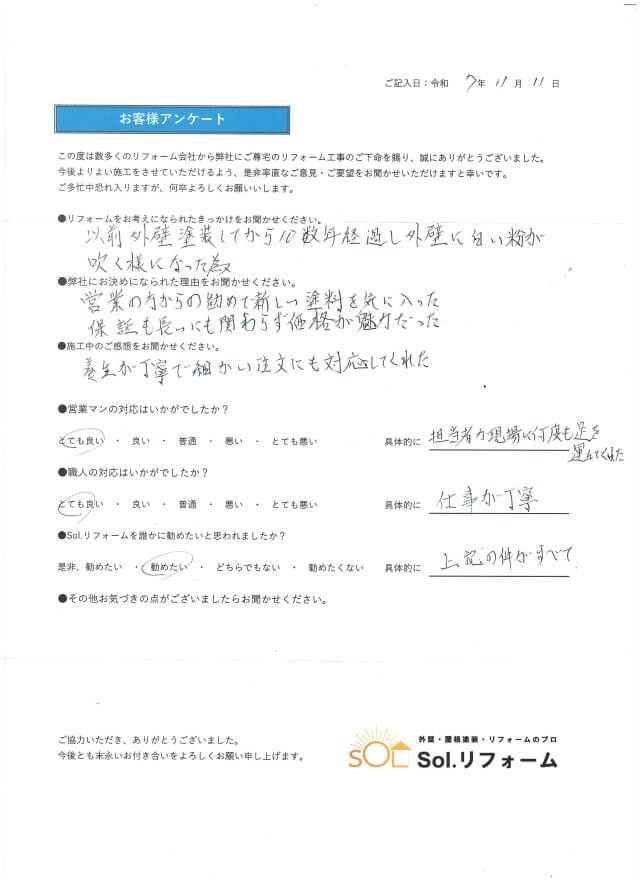 ご記入日：令和 7年 11月 11日
お客様アンケート
この度は数多くのリフォーム会社から弊社にご尊宅のリフォーム工事のご下命を賜り、誠にありがとうございました。
今後よりよい施工をさせていただけるよう、是非率直なご意見・ご要望をお聞かせいただけますと幸いです。
ご多忙中恐れ入りますが、何卒よろしくお願いいします。
●リフォームをお考えになられたきっかけをお聞かせください。
以前外壁塗装してから10数年経過し外壁に白い粉が
吹く様になった為
●弊社にお決めになられた理由をお聞かせください。
営業の方からの勧めで新しい塗料を気に入った
保証も長いにも関わらず価格が魅力だった
●施工中のご感想をお聞かせください。
養生が丁寧で細かい注文にも対応してくれた
●営業マンの対応はいかがでしたか？
とても良い ・ 良い ・ 普通 ・ 悪い ・ とても悪い 具体的に 担当者が現場に何度も足を
運んでくれた
●職人の対応はいかがでしたか？
とても良い ・ 良い ・ 普通 ・ 悪い ・ とても悪い 具体的に 仕事が丁寧
●Sol.リフォームを誰かに勧めたいと思われましたか？
是非、勧めたい ・ 勧めたい ・ どちらでもない ・ 勧めたくない 具体的に 上記の件がすべて
●その他お気づきの点がございましたらお聞かせください。
ご協力いただき、ありがとうございました。
今後とも末永いお付き合いをよろしくお願い申し上げます。
SOL
外壁・屋根塗装・リフォームのプロ
Sol.リフォーム